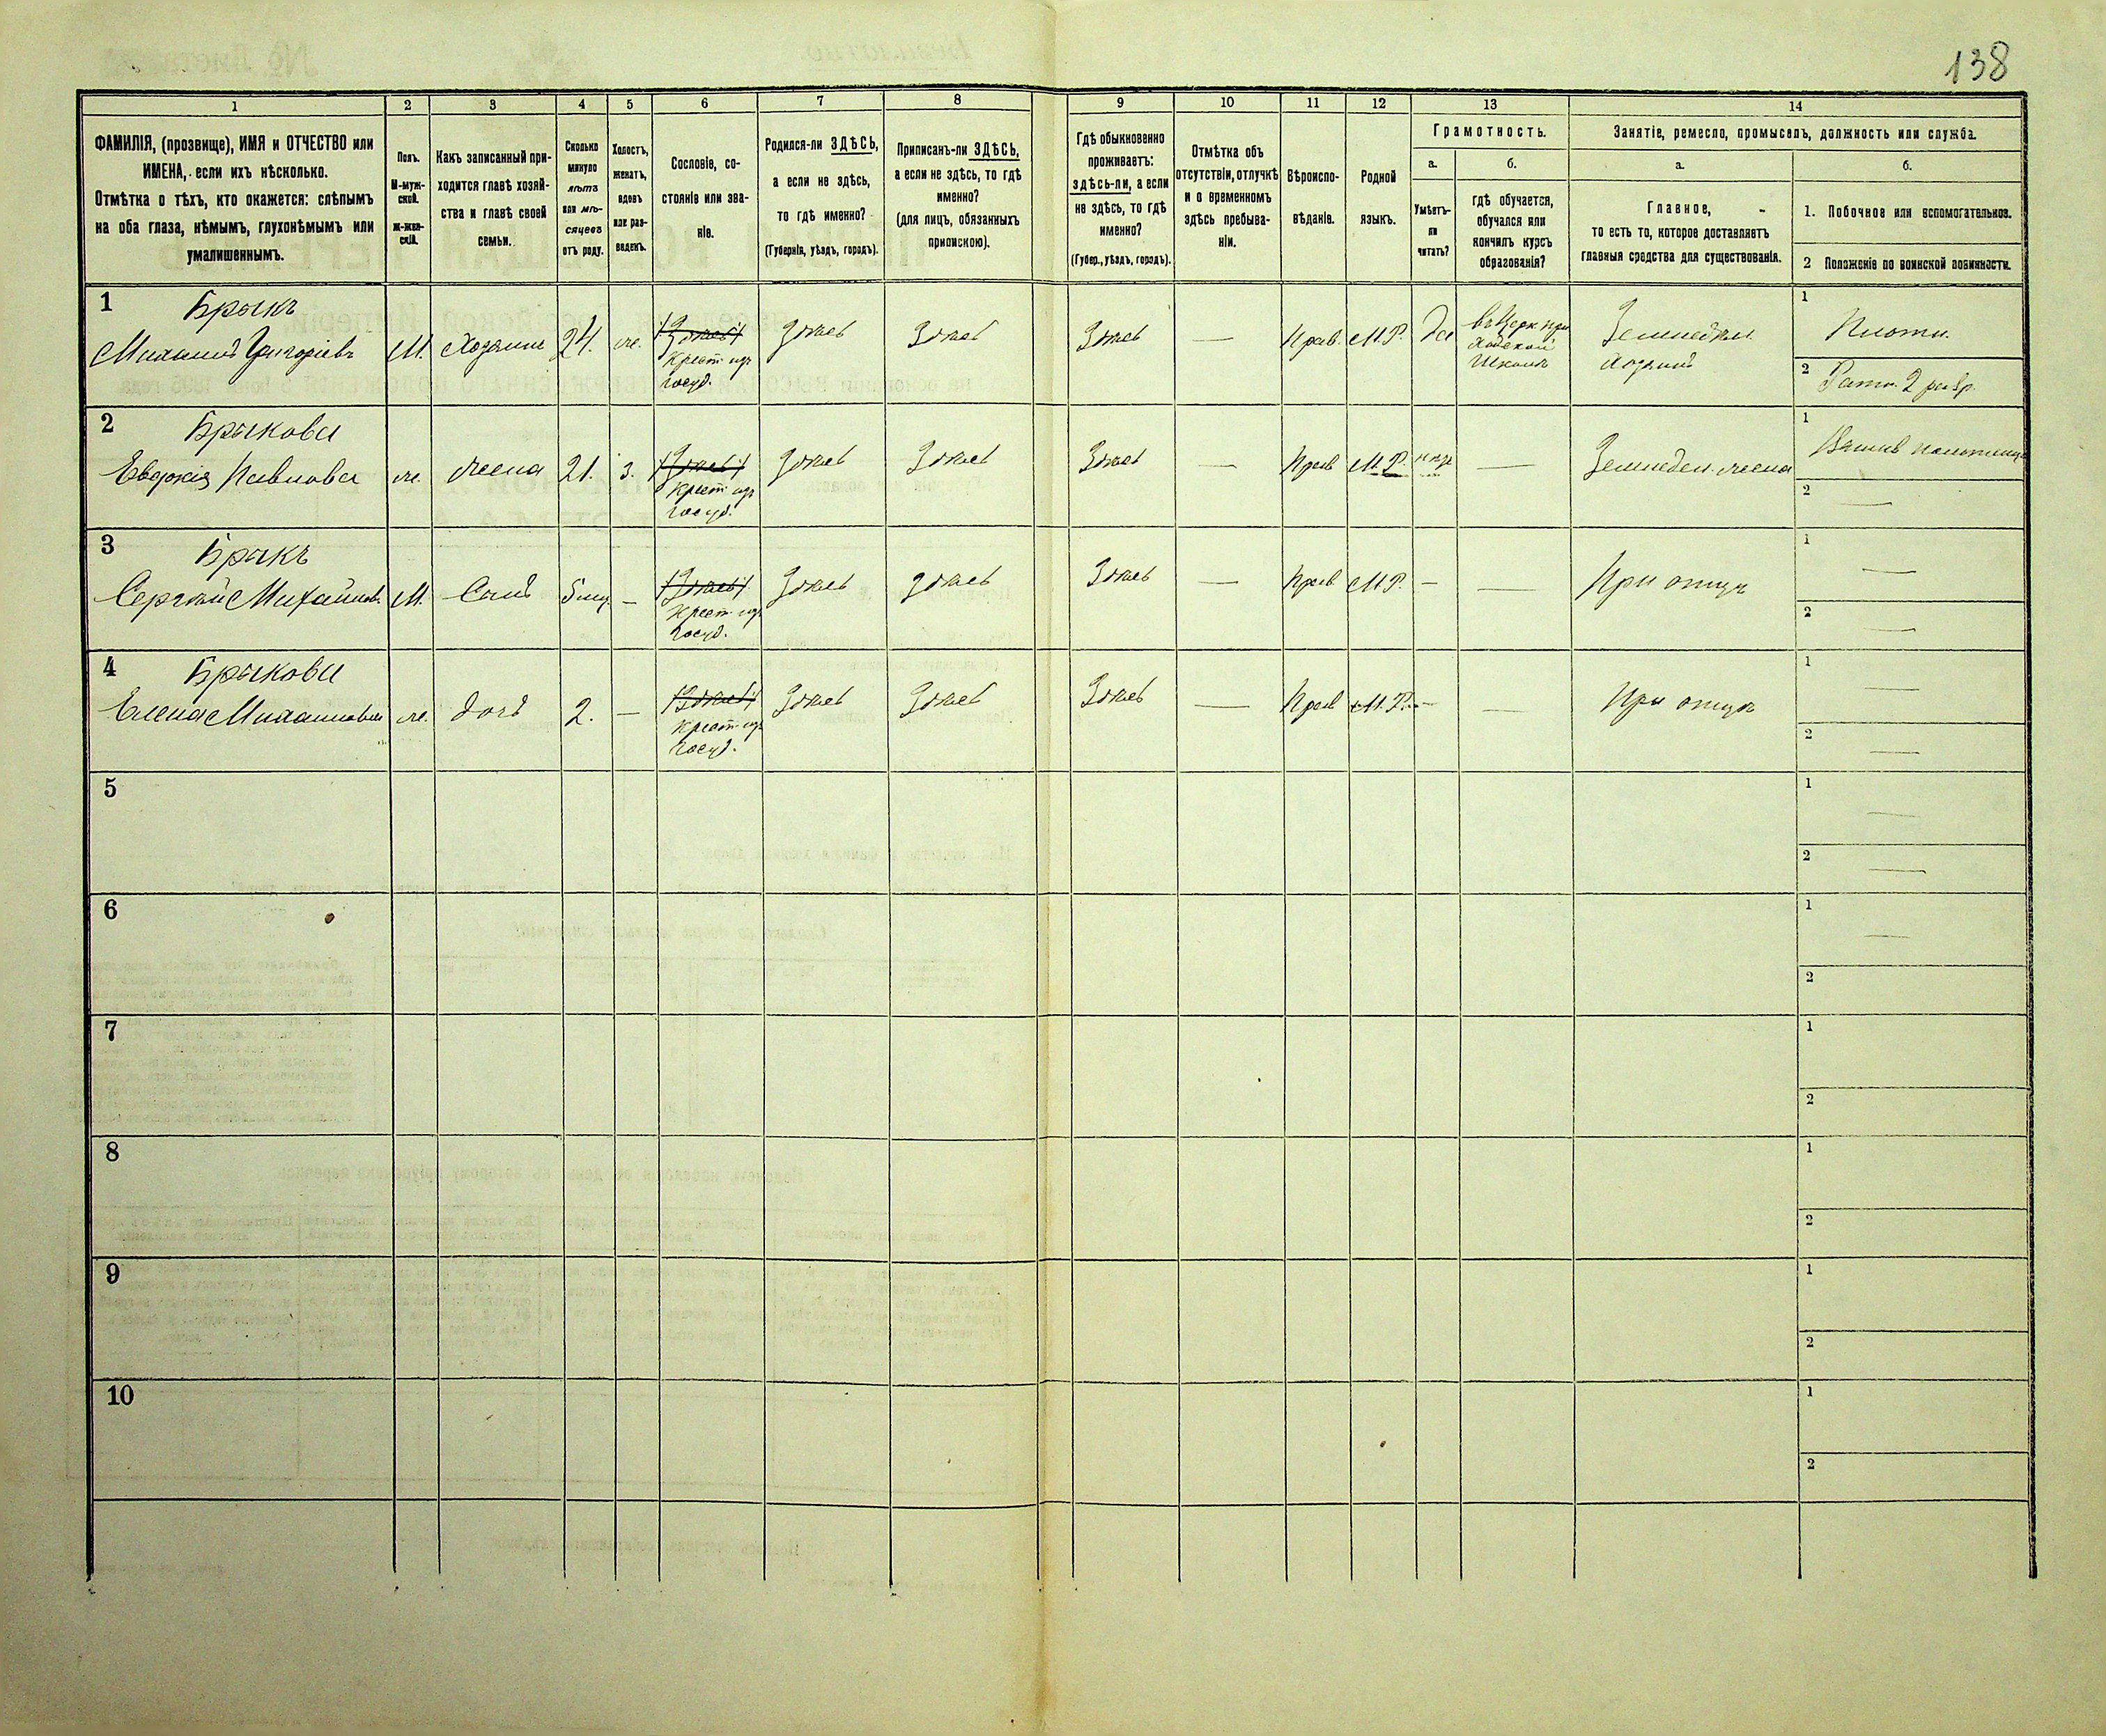 138
1 2 3 4 5 6 7 8 9 10 11 12 13 14
ФАМИЛІЯ, (прозвище), ИМЯ и ОТЧЕСТВО или
ИМЕНА, если ихъ нѣсколько.
Отмѣтка о тѣхъ, кто окажется: слѣпымъ
на оба глаза, нѣмымъ, глухонѣмымъ или
умалишеннымъ.
Полъ.
М-муж-
ской.
ж-жен-
скій.
Какъ записанный при-
ходится главѣ хозяй-
ства и главѣ своей
семьи.
Сколько
минуло
лѣтъ
или мѣ-
сяцевъ
отъ роду.
Холостъ,
женатъ,
вдовъ
или раз-
веденъ.
Сословіе, со-
стоянів или зва-
ніе.
Родился-ли ЗДѢСЬ,
а если не здѣсь,
то гдѣ именно?
(Губернія, уѣздъ, городъ).
Приписанъ-ли ЗДѢСЬ,
а если не здѣсь, то гдѣ
именно?
(для лицъ, обязанныхъ
припискою).
Гдѣ обыкновенно
проживаетъ:
здѣсь-ли, а если
не здѣсь, то гдѣ
именно?
(Губер., уѣздъ, городъ).
Отмѣтка объ
отсутствіи, отлучкѣ
и о временномъ
здѣсь пребыва-
ніи.
Вѣроиспо-
вѣданіе.
Родной
языкъ.
Грамотность.
а.
Умѣетъ-
ли
читать?
б.
гдѣ обучается,
обучался или
кончилъ курсъ
образованія?
Занятіе, ремесло, промыселъ, должность или служба.
а.
Главное,
то есть то, которое доставляетъ
главныя средства для существованія.
б.
1. Побочное или вспомогательное.
2 Положеніе по воинской повинности.
1 Брыкъ
Михаилъ Григоріевъ М. Хозяинъ 24. же. Здѣсь
Крест. изъ
госуд.
Здѣсь Здѣсь Здѣсь — Прав. М.Р. Да
въ Церк. при
ходской
Школѣ
Земледѣл.
Хозяинъ
1 Плотн.
2 Ратн. 2 разр.
2 Брыкова
Евдокія Павлова ж. жена 21. з. Здѣсь
Крест. изъ
госуд.
Здѣсь Здѣсь Здѣсь — Прав М.Р. — Земледел. жена
1
2 —
3 Брыкъ
Сергѣй Михайловъ М. Сынъ 5 мц. — Здѣсь
Крест. изъ
госуд.
Здѣсь Здѣсь Здѣсь — Прав М.Р. — — При отцѣ
1 —
2 —
4 Брыкова
Елена Михаилова ж. дочь 2. — Здѣсь
Крест. изъ
госуд.
Здѣсь Здѣсь Здѣсь — Прав М.Р. — — При отцѣ
1 —
2 —
5
1 —
2 —
6
1 —
2
7
1
2
8
1
2
9
1
2
10
1
2